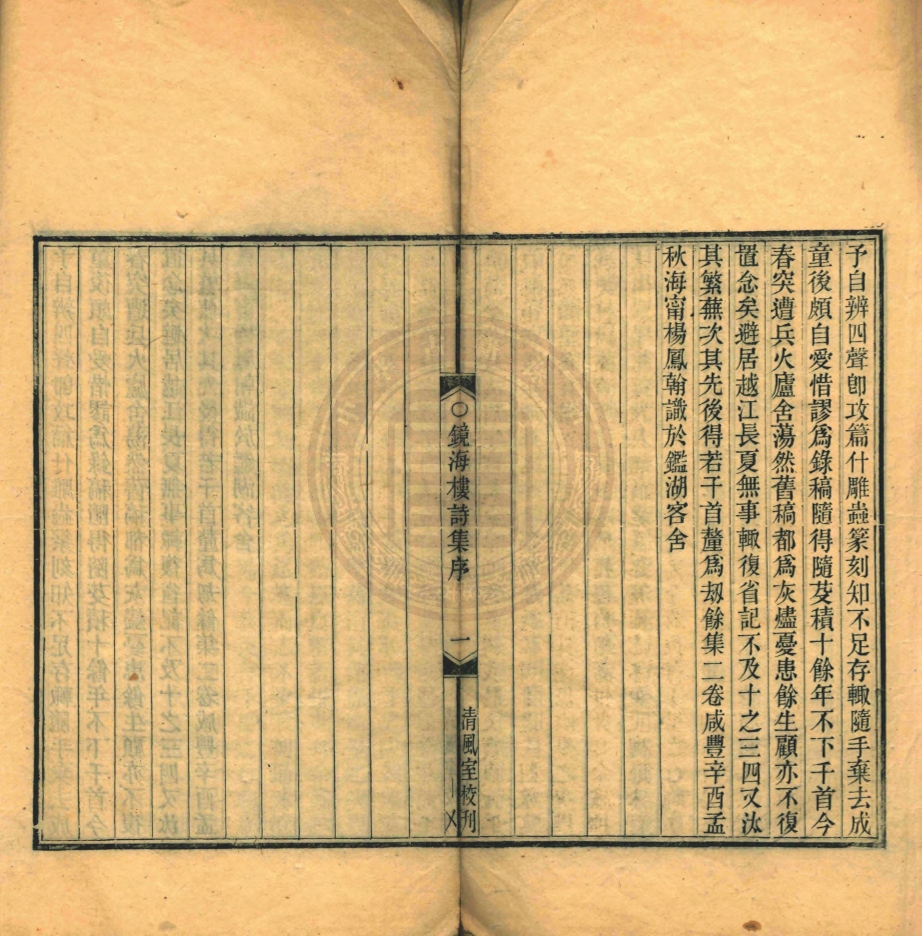 予自辨四聲卽攻篇什雕蟲篆刻知不足存輙隨手棄去成
童後頗自愛惜謬爲錄稿隨得隨芟積十餘年不下千首今
春突遭兵火廬舍蕩然舊稿都爲灰燼憂患餘生顧亦不復
置念矣避居越江長夏無事輙復省記不及十之三四又汰
其繁蕪次其先後得若干首釐爲刼餘集二卷咸豐辛酉孟
秋海甯楊鳳翰識於鑑湖客舍
鏡海樓詩集序
一
清風室校刋